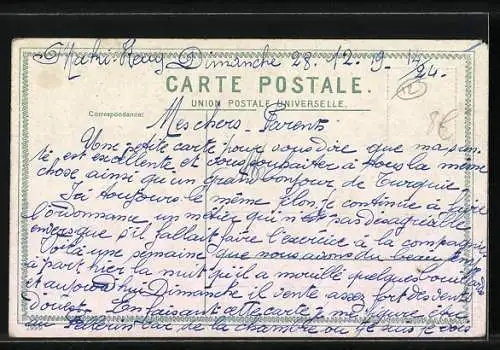 Dimanche 28. 12. 19
24.
CARTE POSTALE.
UNION POSTALE UNIVERSELLE.
Correspondance:
Mes chers Parents
8€
Une petite carte pour vous dire que ma san-
té est excellente et vous souhaiter à tous la même
chose ainsi qu'un grand bonjour de Turquie.
Ici toujours le même filon, je continue à faire
l'ordonnance un métier qui n'est pas désagréable
s'il fallait faire l'exercice à la compagnie
Voilà une semaine que nous avons du beau
à part hier la nuit qu'il a mouillé quelques
et aujourd'hui Dimanche il vente assez fort des vents
d'ouest. En faisant cette carte je me figure
de la chambre ou je suis je vois